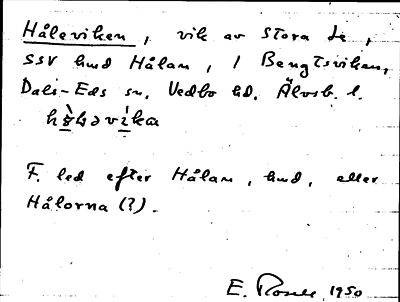 Håleviken, vik av Stora Le,
SSV hmd Hålan, i Bengtsviken,
Dals-Eds sn, Vedbo hd. Älvsb. l.

F. led efter Hålan, hmd, eller
Hålorna (?).
E. 1950